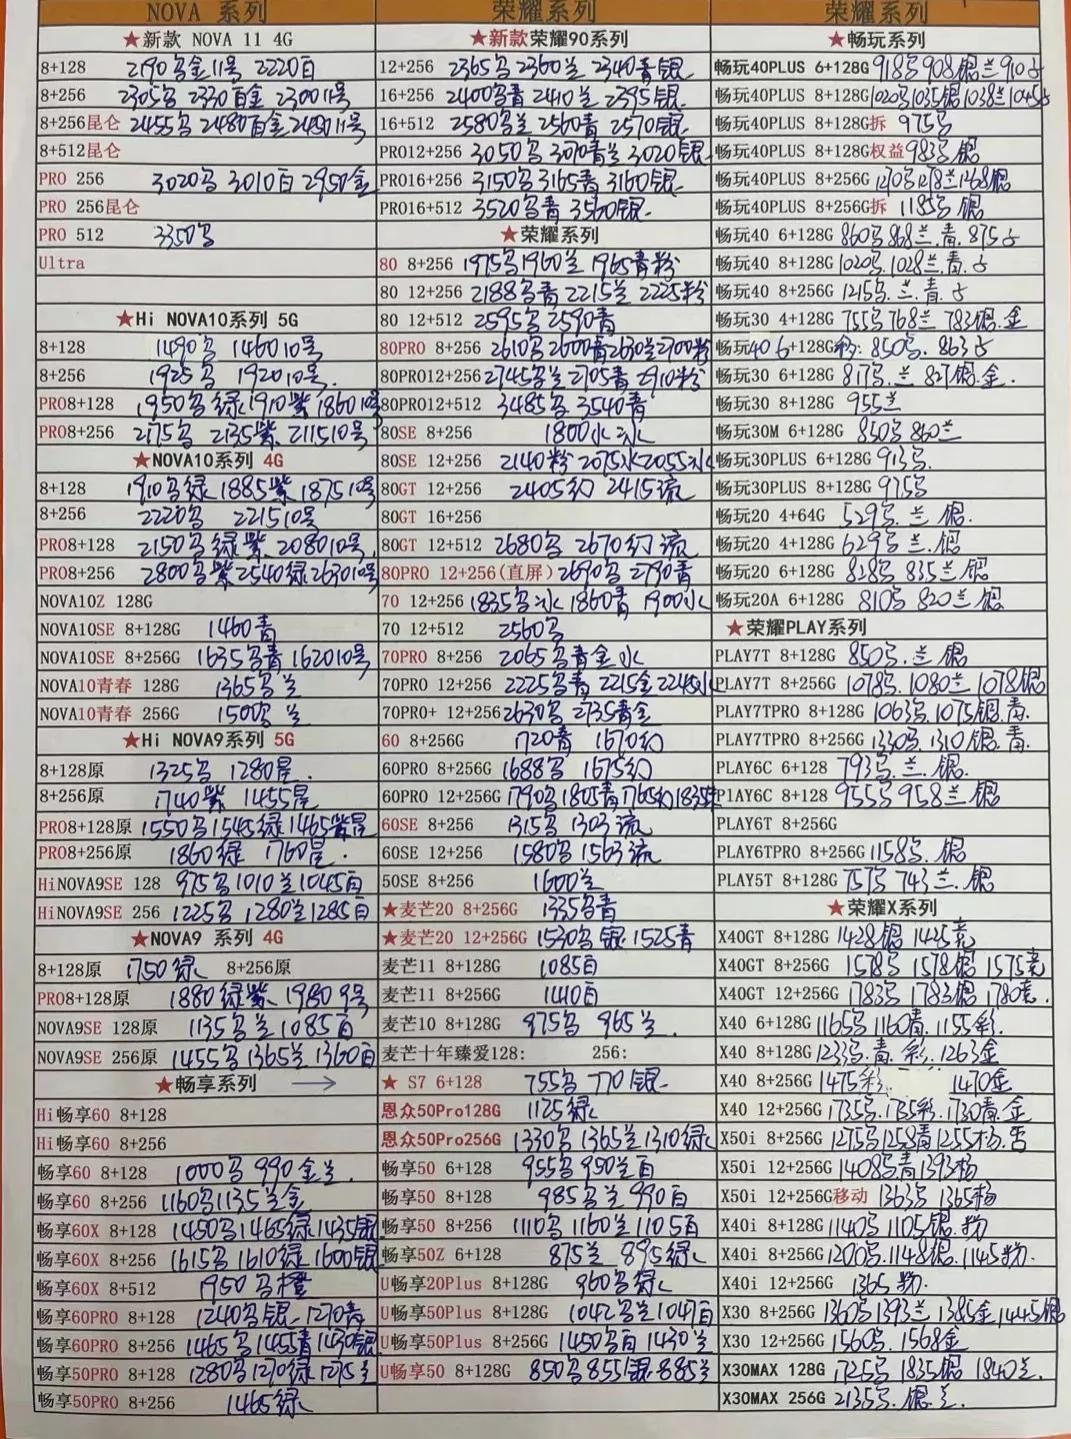 NOVA 系列
★新款 NOVA 11 4G
8+128 2190乌金11号 2220白
8+256 2305乌 2330白金 2300 11号
8+256昆仑 2455乌 2480白金 2450 11号
8+512昆仑
PRO 256 3020乌 3010白 2950金
PRO 256昆仑
PRO 512 3350乌
Ultra
★Hi NOVA10系列 5G
8+128 1490乌 1460 10号
8+256 1925乌 1920 10号
PRO8+128 1950乌绿 1910紫 1860 10号
PRO8+256 2175乌 2135紫 2115 10号
★NOVA10系列 4G
8+128 1910乌绿 1885紫 1875 10号
8+256 2220乌 2215 10号
PRO8+128 2150乌绿紫 2080 10号
PRO8+256 2800乌紫 2540绿 2630 10号
NOVA10Z 128G
NOVA10SE 8+128G 1460青
NOVA10SE 8+256G 1635乌青 1620 10号
NOVA10青春 128G 1365乌兰
NOVA10青春 256G 1500乌兰
★Hi NOVA9系列 5G
8+128原 1325乌 1280星
8+256原 1740紫 1455星
PRO8+128原 1550乌 1545绿 1465紫星
PRO8+256原 1860绿 1760星
HiNOVA9SE 128 975乌 1010兰 1045白
HiNOVA9SE 256 1225乌 1280兰 1285白
★NOVA9 系列 4G
8+128原 1750绿 8+256原
PRO8+128原 1880绿紫 1980 9号
NOVA9SE 128原 1135乌兰 1085白
NOVA9SE 256原 1455乌 1365兰 1360白
★畅享系列 →
Hi畅享60 8+128
Hi畅享60 8+256
畅享60 8+128 1000乌 990金兰
畅享60 8+256 1160乌 1135兰金
畅享60X 8+128 1450乌 1465绿 1435银
畅享60X 8+256 1615乌 1610绿 1600银
畅享60X 8+512 1950乌橙
畅享60PRO 8+128 1240乌银 1270青
畅享60PRO 8+256 1465乌 1455青 1430银
畅享50PRO 8+128 1280乌 1270绿 1275兰
畅享50PRO 8+256 1465绿
荣耀系列
★新款荣耀90系列
12+256 2365乌 2360兰 2340青银
16+256 2400乌青 2410兰 2395银
16+512 2580乌兰 2560青 2570银
PRO12+256 3050乌 3070青兰 3020银
PRO16+256 3150乌 3165青 3160银
PRO16+512 3520乌青 3560银
★荣耀系列
80 8+256 1975乌 1960兰 1965青粉
80 12+256 2188乌青 2215兰 2225粉
80 12+512 2595乌 2590青
80PRO 8+256 2610乌 2600青 2630兰 2700粉
80PRO12+256 2745乌兰 2705青 2910粉
80PRO12+512 3485乌 3540青
80SE 8+256 1800水冰
80SE 12+256 2140粉 2075冰 2055水
80GT 12+256 2405幻 2415流
80GT 16+256
80GT 12+512 2680乌 2670幻流
80PRO 12+256(直屏) 2690乌 2790青
70 12+256 1835乌冰 1860青 1900水
70 12+512 2560乌
70PRO 8+256 2065乌青金水
70PRO 12+256 2225乌青 2215金 2245水
70PRO+ 12+256 2630乌 2735青金
60 8+256G 1720青 1670幻
60PRO 8+256G 1688乌 1675幻
60PRO 12+256G 1790乌 1805青 1765幻 1835
60SE 8+256 1315乌 1303流
60SE 12+256 1580乌 1563流
50SE 8+256 1600兰
★麦芒20 8+256G 1335乌青
★麦芒20 12+256G 1530乌银 1525青
麦芒11 8+128G 1085白
麦芒11 8+256G 1410白
麦芒10 8+128G 975乌 965兰
麦芒十年臻爱128: 256:
★ S7 6+128 755乌 770银
恩众50Pro128G 1125绿
恩众50Pro256G 1330乌 1365兰 1310绿
畅享50 6+128 955乌 950兰白
畅享50 8+128 985乌兰 990白
畅享50 8+256 1110乌 1160兰 1105白
畅享50Z 6+128 875兰 895绿
U畅享20Plus 8+128G 960乌绿
U畅享50Plus 8+128G 1042乌兰 1047白
U畅享50Plus 8+256G 1450乌白 1430兰
U畅享50 8+128G 850乌 855银 885兰
荣耀系列
★畅玩系列
畅玩40PLUS 6+128G 918乌 908银兰 910
畅玩40PLUS 8+128G 1020乌 1035银 1038兰 1045
畅玩40PLUS 8+128G拆 975乌
畅玩40PLUS 8+128G权益 983乌.银
畅玩40PLUS 8+256G 1270乌 1278兰 1268银
畅玩40PLUS 8+256G拆 1185乌.银
畅玩40 6+128G 860乌 868兰.青. 875
畅玩40 8+128G 1020乌. 1028兰.青.
畅玩40 8+256G 1215乌.兰.青.
畅玩30 4+128G 755乌 768兰 783银.金
畅玩40 6+128G 850乌. 863
畅玩30 6+128G 817乌.兰 827银.金.
畅玩30 8+128G 955兰
畅玩30M 6+128G 850乌 860兰
畅玩30PLUS 6+128G 913乌.
畅玩30PLUS 8+128G 975乌
畅玩20 4+64G 529乌.兰.银.
畅玩20 4+128G 629乌.兰.银
畅玩20 6+128G 828乌 835兰银
畅玩20A 6+128G 810乌 820兰银
★荣耀PLAY系列
PLAY7T 8+128G 850乌.兰 银
PLAY7T 8+256G 1078乌. 1080兰 1078银
PLAY7TPRO 8+128G 1063乌. 1075银.青.
PLAY7TPRO 8+256G 1330乌. 1310银.青.
PLAY6C 6+128 793乌.兰.银.
PLAY6C 8+128 955乌 958兰银
PLAY6T 8+256G
PLAY6TPRO 8+256G 1158乌.银
PLAY5T 8+128G 757乌 743兰.银
★荣耀X系列
X40GT 8+128G 1428银 1425竞
X40GT 8+256G 1578乌 1578银 1575竞
X40GT 12+256G 1783乌 1783银 1780竞.
X40 6+128G 1165乌 1160青. 1155彩.
X40 8+128G 1233乌.青.彩. 1263金
X40 8+256G 1475彩 1470金
X40 12+256G 1735乌. 1755彩. 1730青.金
X50i 8+256G 1275乌 1258青 1255杨.
X50i 12+256G 1408乌青 1393杨
X50i 12+256G移动 1363乌 1365杨
X40i 8+128G 1140乌 1105银.粉
X40i 8+256G 1200乌. 1148银. 1145粉.
X40i 12+256G 1365粉.
X30 8+256G 1360乌 1393兰 1385金 1445银
X30 12+256G 1560乌. 1568金
X30MAX 128G 1725乌 1835银 1840兰.
X30MAX 256G 2135乌.银.兰.